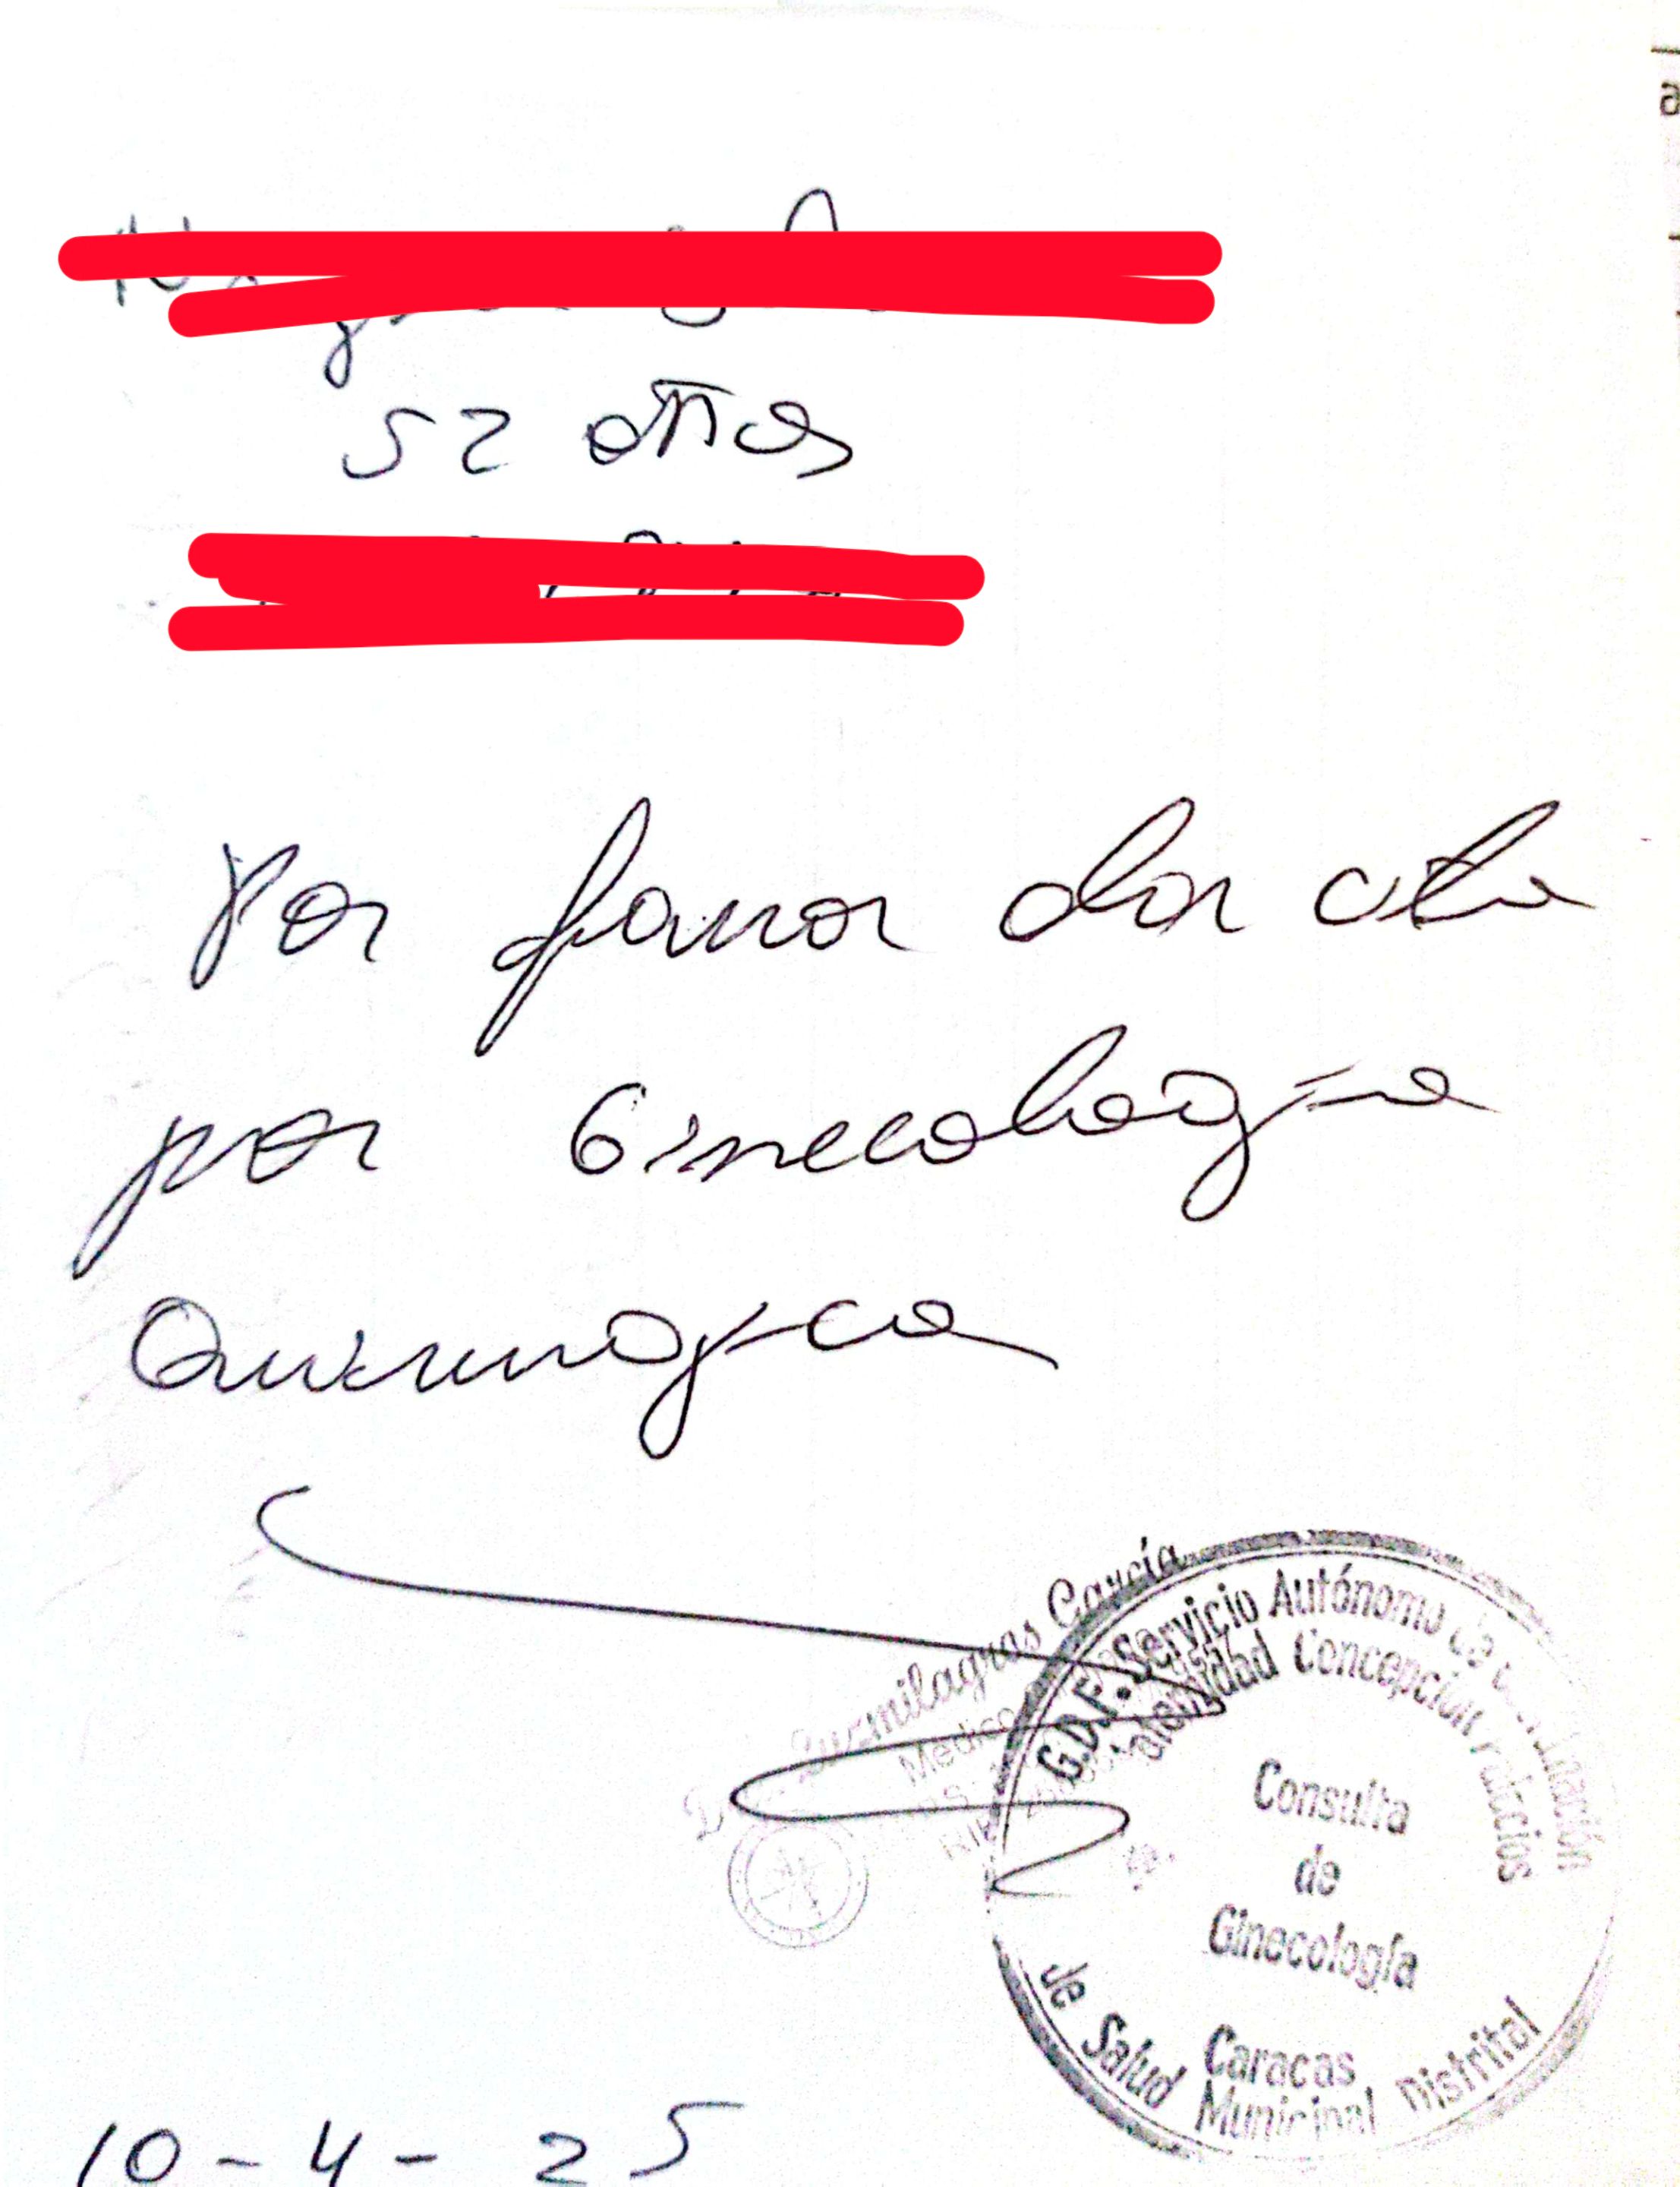 52 años
Por favor dar cita
por Ginecología
Quirurgica
Luzmilagros García
Medico
G.D.F. Servicio Autónomo de
Maternidad Concepción Palacios
Consulta
de
Ginecología
Caracas
de Salud Municipal Distrital
10-4-25